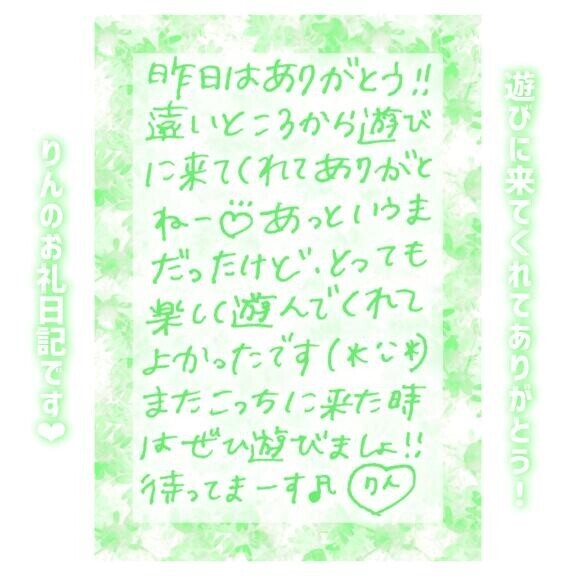 遊びに来てくれてありがとう!
昨日はありがとう!!
遠いところから遊び
に来てくれてありがと
ねー♡あっというま
だったけど、とっても
楽しく遊んでくれて
よかったです(*'ᵕ'*)
またこっちに来た時
はぜひ遊びましょ!!
待ってまーす♬ りん
りんのお礼日記です❤